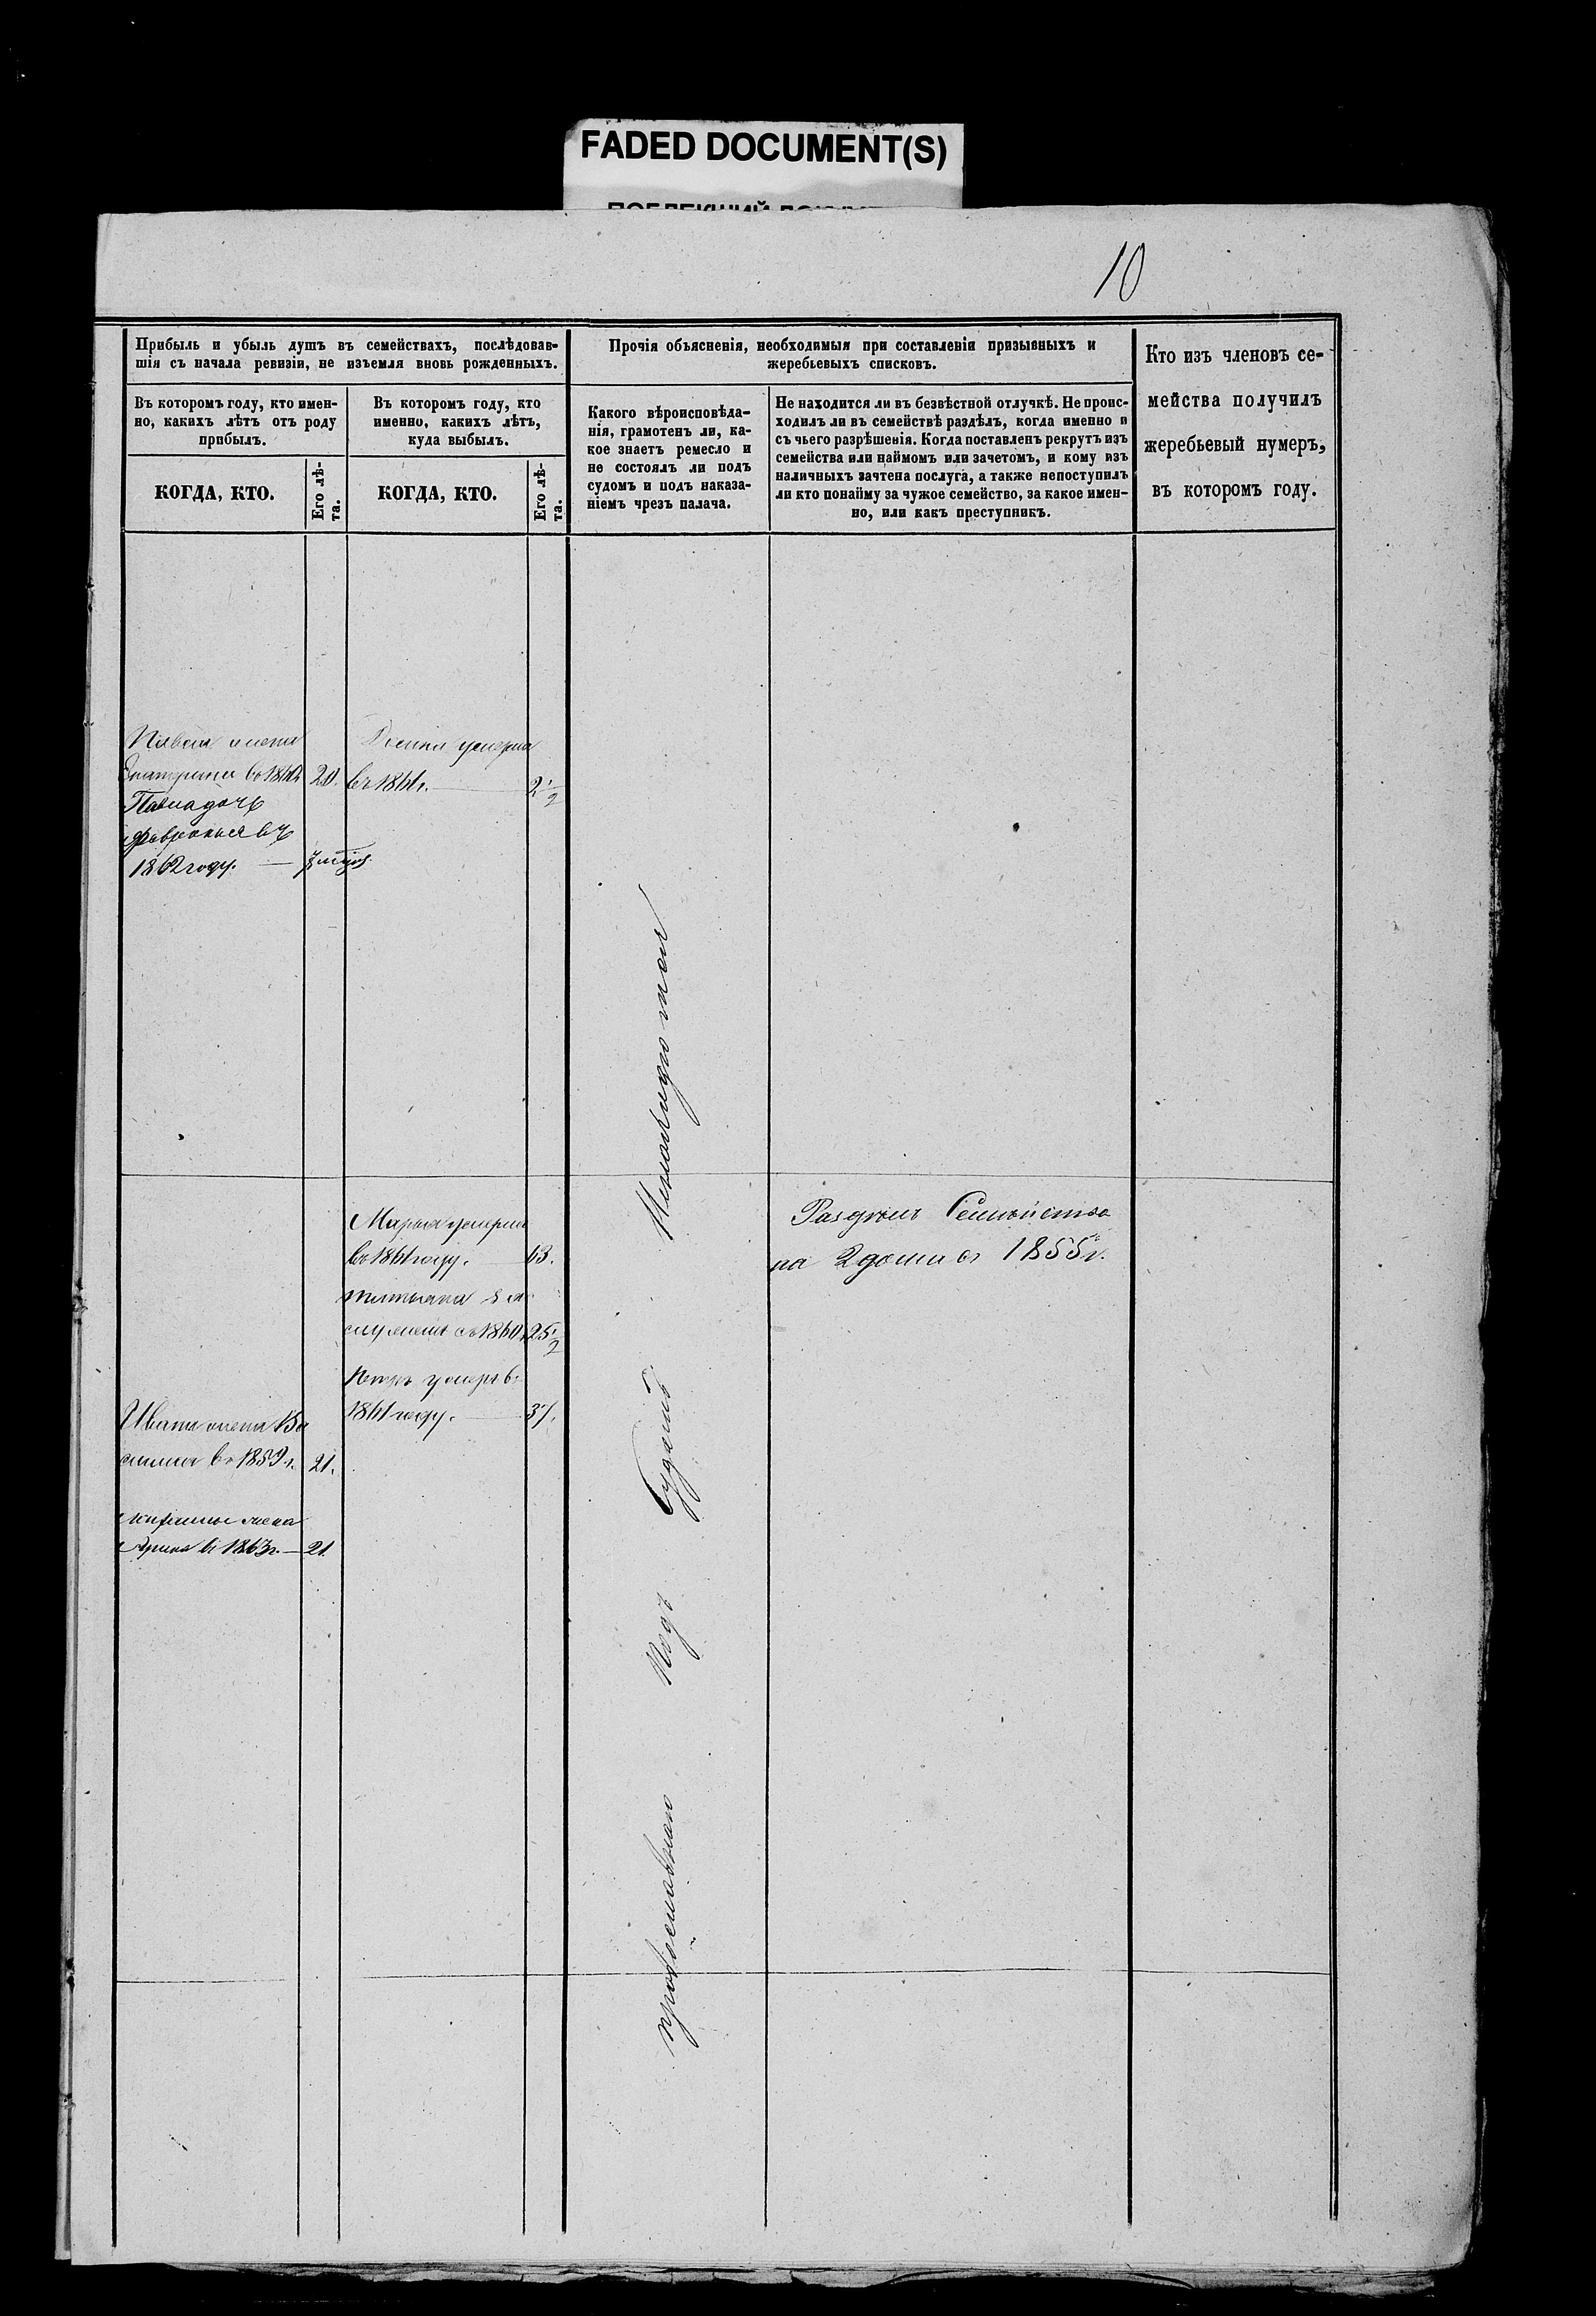 FADED DOCUMENT(S)
10
Прибыль и убыль душъ въ семействахъ, послѣдовав-
шія съ начала ревизіи, не изъемля вновь рожденныхъ.
Въ которомъ году, кто имен-
но, какихъ лѣтъ отъ роду
прибылъ.
КОГДА, КТО.
Его лѣ-
та.
Въ которомъ году, кто
именно, какихъ лѣтъ,
куда выбылъ.
КОГДА, КТО.
Его лѣ-
та.
Прочія объясненія, необходимыя при составленіи призывныхъ и
жеребьевыхъ списковъ.
Какого вѣроисповѣда-
нія, грамотенъ ли, ка-
кое знаетъ ремесло и
не состоялъ ли подъ
судомъ и подъ наказа-
ніемъ чрезъ палача.
Не находится ли въ безвѣстной отлучкѣ. Не проис-
ходилъ ли въ семействѣ раздѣлъ, когда именно и
съ чьего разрѣшенія. Когда поставленъ рекрутъ изъ
семейства или наймомъ или зачетомъ, и кому изъ
наличныхъ зачтена послуга, а также непоступилъ
ли кто понайму за чужое семейство, за какое имен-
но, или какъ преступникъ.
Кто изъ членовъ се-
мейства получилъ
жеребьевый нумеръ,
въ которомъ году.
жена
Екатерина въ 1860 20.
Павла дочь
Февронья въ
1862 году.
умерла
въ 1861 г. 2 1/2
Марья умерла
въ 1861 году. 63.
въ 1860 25 1/2
Петръ умеръ въ
1861 году. 37.
Ивана жена Ва
силиса въ 1859 г. 21.
жена
Арина въ 1863 г. 21.
православнаго
Подъ
Судомъ
Раздѣлъ Семейства
на 2 дома съ 1855 г.